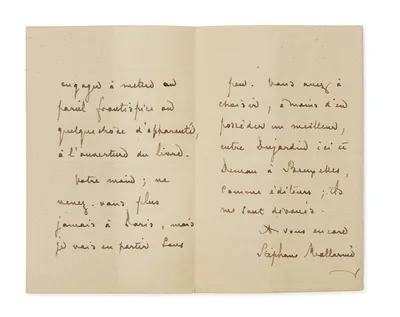 engager à mettre un
pareil frontispice ou
quelque chose d'apparenté,
à l'ouverture du livre.
Votre main ; ne
venez-vous plus
jamais à Paris, mais
je vais en partir sous
peu. Vous avez à
choisir, à moins d'en
posséder un meilleur,
entre Dujardin ici et
Deman à Bruxelles,
comme éditeurs ; ils
me sont dévoués.
A vous encore
Stéphane Mallarmé